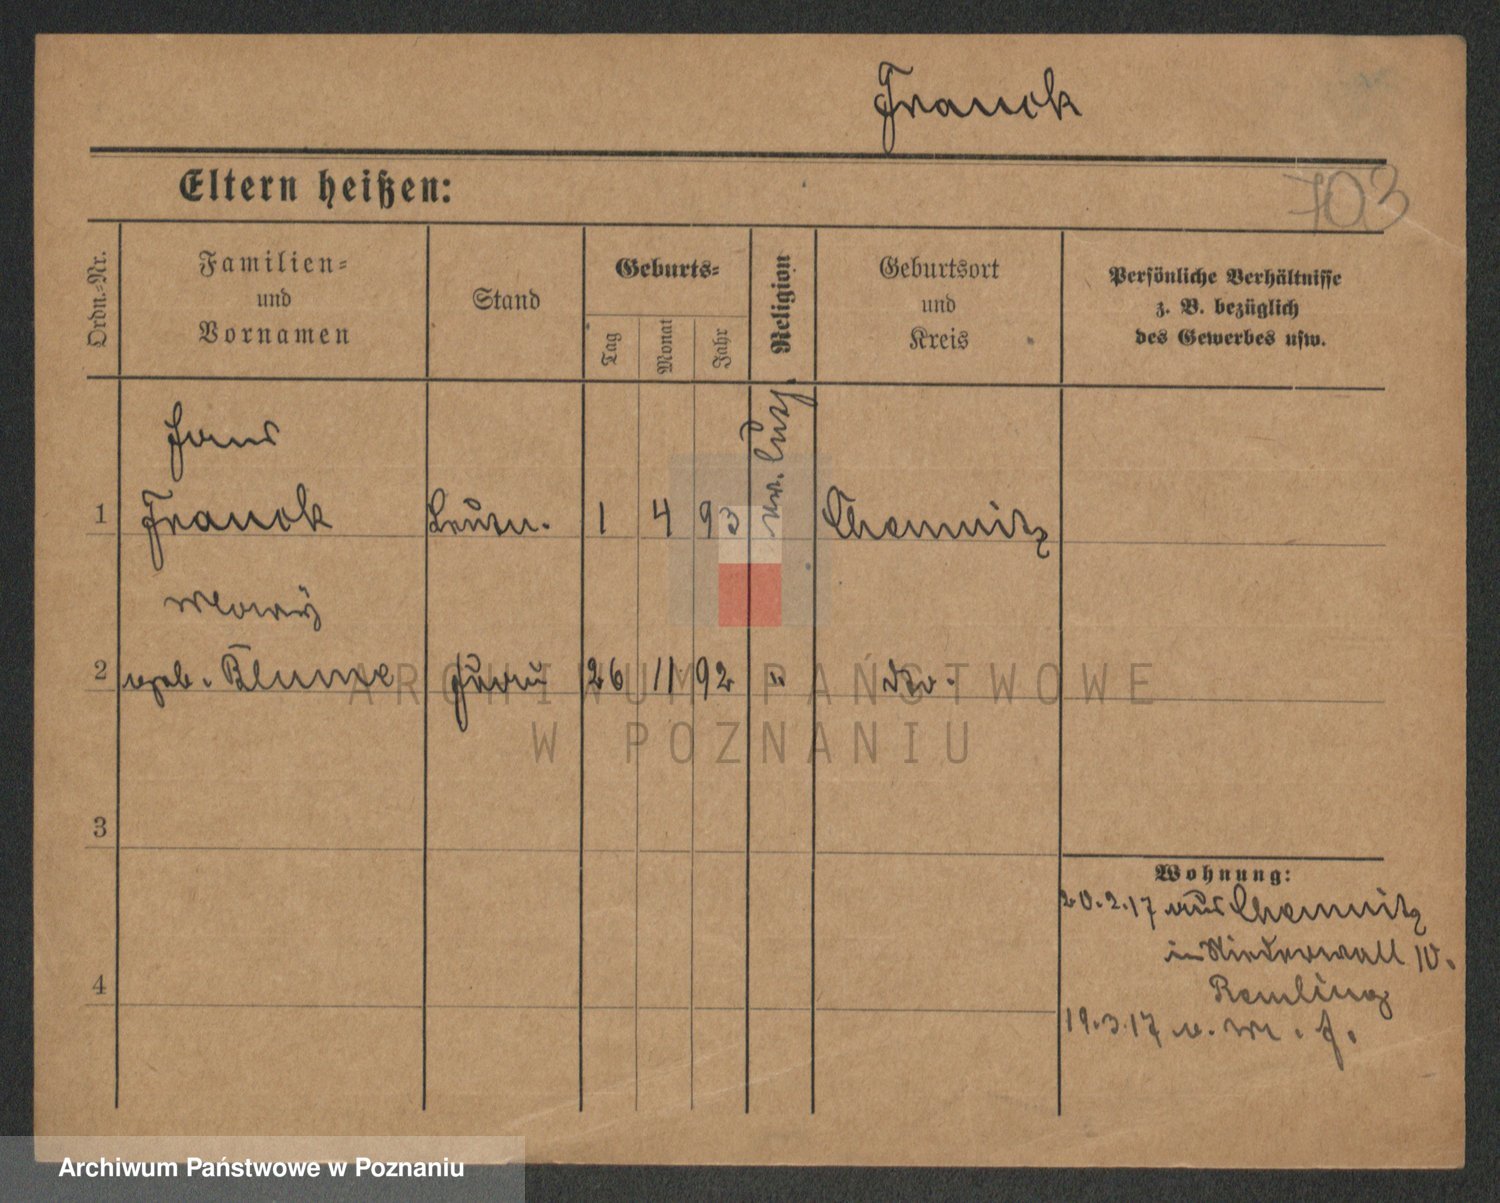 Franck
703
Eltern heißen:
Ordn.-Nr.
Familien-
und
Vornamen
Stand
Geburts-
Tag
Monat
Jahr
Religion
Geburtsort
und
Kreis
Persönliche Verhältnisse
z. B. bezüglich
des Gewerbes usw.
Hans
1 Franck Leutn. 1 4 93 ev. luth. Chemnitz
Mary
2 geb. Blume Frau 26 11 92 " dto.
3
4
Wohnung:
20.2.17 aus Chemnitz
in Niederwall 10.
19.3.17
ARCHIWUM PAŃSTWOWE
W POZNANIU
Archiwum Państwowe w Poznaniu